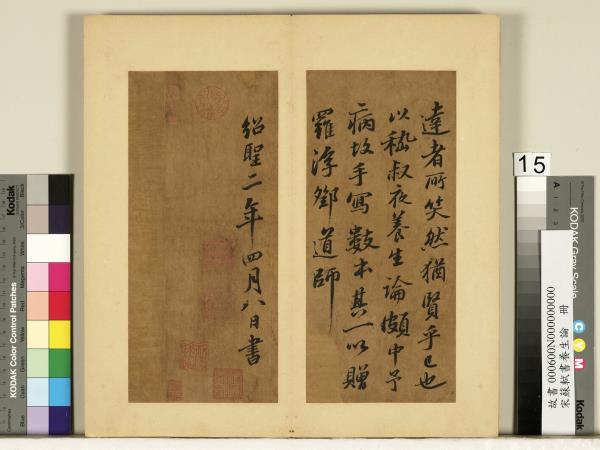 達者所笑然猶賢乎已也
以嵇叔夜養生論頗中予
病故手寫數本其一以贈
羅浮鄧道師
紹聖二年四月八日書
15
KODAK Gray Scale
A 1 2 3
C Y M
Kodak
故書 000600N000000000
宋蘇軾書養生論 冊
Kodak
KODAK Color Control Patches
Blue Cyan Green Yellow Red Magenta White 3/Color Black